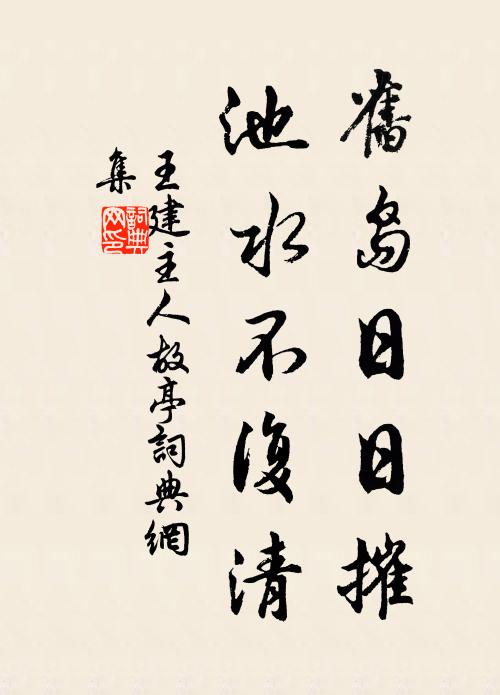 舊島日日摧
池水不復清
王建主人故亭詞典網
集
詞典網印